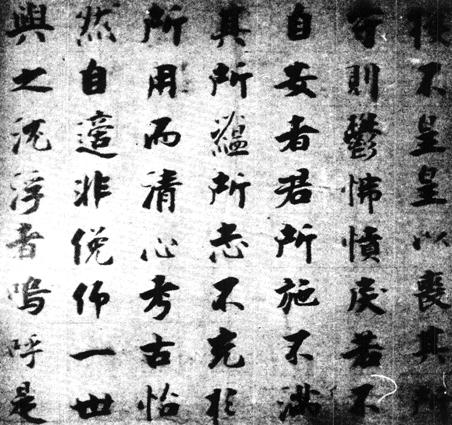 不皇皇以喪其所
守則鬱怫憤戾若不
自安者君所施不滿
其所蘊所志不充於
所用而清心考古怡
然自適非俛仰一世
與之沈浮者嗚呼是